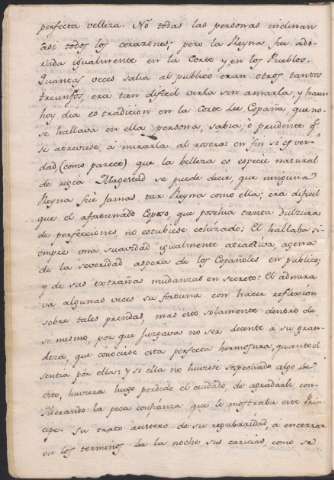 perfecta velleza. No todas las personas inclinan
asi todos los corazones; pero la Reyna, fue ado-
rada igualmente en la Corte y en los Pueblos.
Quantas veces salia al publico eran otros tantos
triunfos, era tan dificil verla sin amarla, y haun
hoy dia es tradicion en la Corte de España, que no-
se hallava en ella persona, sabia, ò prudente q.e
se atreviese, à mirarla al rostro: en fin si es ver-
dad (como parece) que la belleza es especie natural
de regia Magestad se puede decir que ninguna
Reyna fue jamas tan Reyna como ella; era dificil
que el afortunado Esposo, que posehia tanta dulzura
de perfecciones, no estubiese celozado; El hallaba si-
empre una suavidad igualmente atractiva, agena
de la severidad aspera de los Españoles en publico,
y de sus estrañas mudanzas en secreto: El admira-
va algunas veces su fortuna con hacer reflexion
sobre tales prendas, mas esto solamente dentro de
si mismo, por que juzgava no ser decente a su gran-
deza, que conociese esta perfecta hermosura, quanto el
sentia por ella; y si ella no huviese sospechado algo de
esto, huviera luego perdido el cuidado, de agradarle con-
siderando la poca confianza que le mostraba este Prin-
cipe. Su trato austero de su regularidad, à encerrar
en los terminos de la noche sus caricias, como se